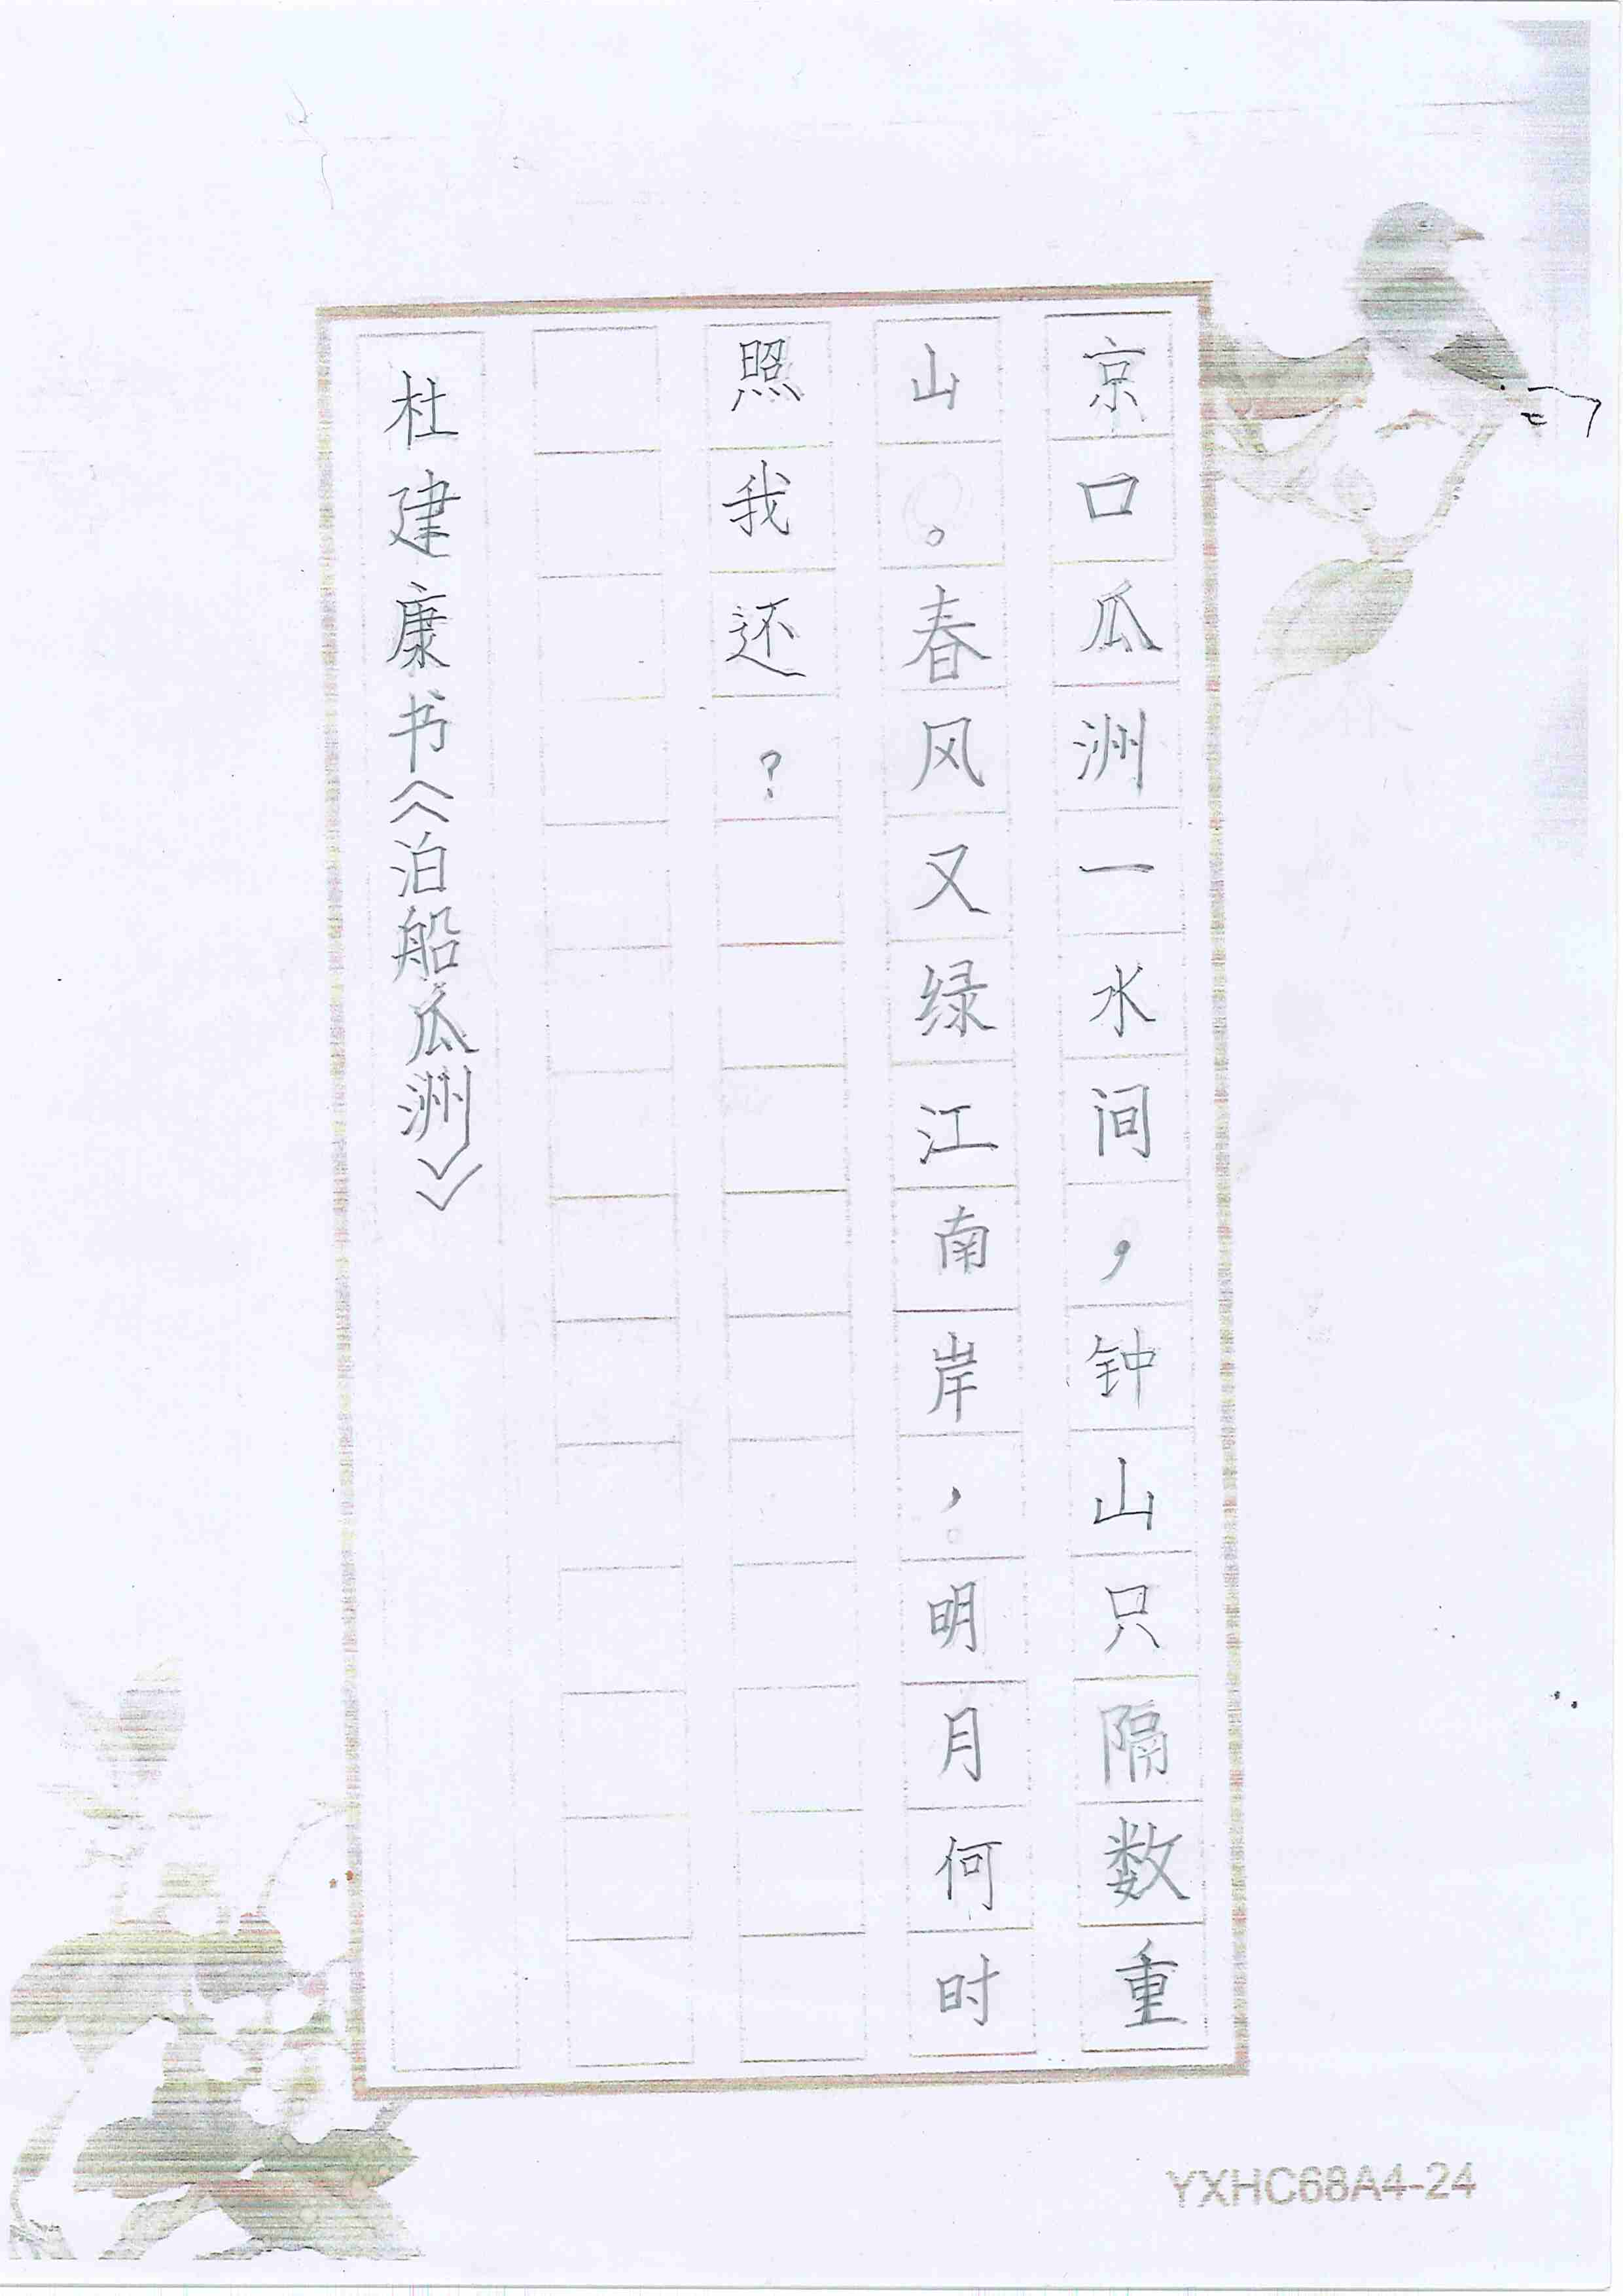 京口瓜洲一水间，钟山只隔数重
山。春风又绿江南岸，明月何时
照我还？
杜建康书《泊船瓜洲》
YXHC68A4-24